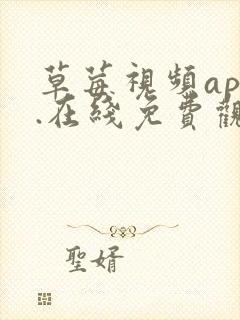 草莓視頻ap
.在綫免費觀
聖婿